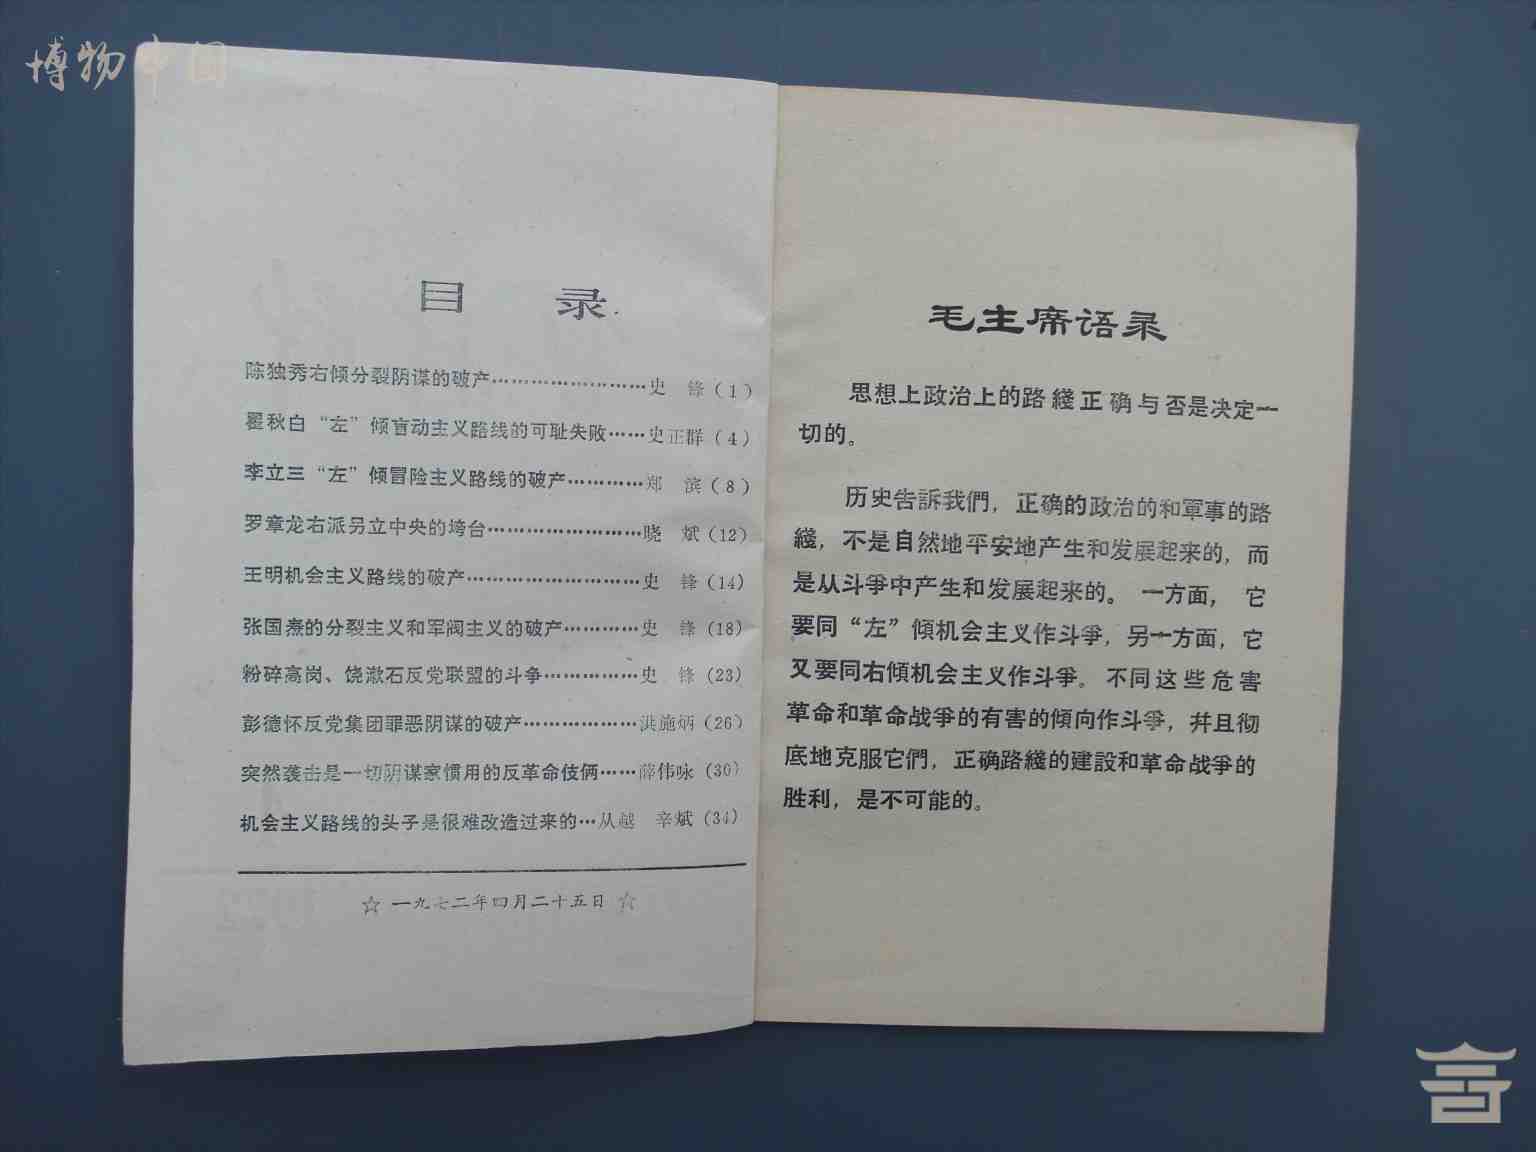 博物中国
目 录
陈独秀右倾分裂阴谋的破产……………………史 锋（1）
瞿秋白“左”倾盲动主义路线的可耻失败……史正群（4）
李立三“左”倾冒险主义路线的破产…………郑 滨（8）
罗章龙右派另立中央的垮台……………………晓 斌（12）
王明机会主义路线的破产………………………史 锋（14）
张国焘的分裂主义和军阀主义的破产…………史 锋（18）
粉碎高岗、饶漱石反党联盟的斗争……………史 锋（23）
彭德怀反党集团罪恶阴谋的破产………………洪施炳（26）
突然袭击是一切阴谋家惯用的反革命伎俩……薛伟咏（30）
机会主义路线的头子是很难改造过来的…从越 辛斌（34）
☆ 一九七二年四月二十五日 ☆
毛主席语录
思想上政治上的路綫正确与否是决定一
切的。
历史告訴我們，正确的政治的和軍事的路
綫，不是自然地平安地产生和发展起来的，而
是从斗爭中产生和发展起来的。一方面，它
要同“左”傾机会主义作斗爭，另一方面，它
又要同右傾机会主义作斗爭。不同这些危害
革命和革命战爭的有害的傾向作斗爭，幷且彻
底地克服它們，正确路綫的建設和革命战爭的
胜利，是不可能的。